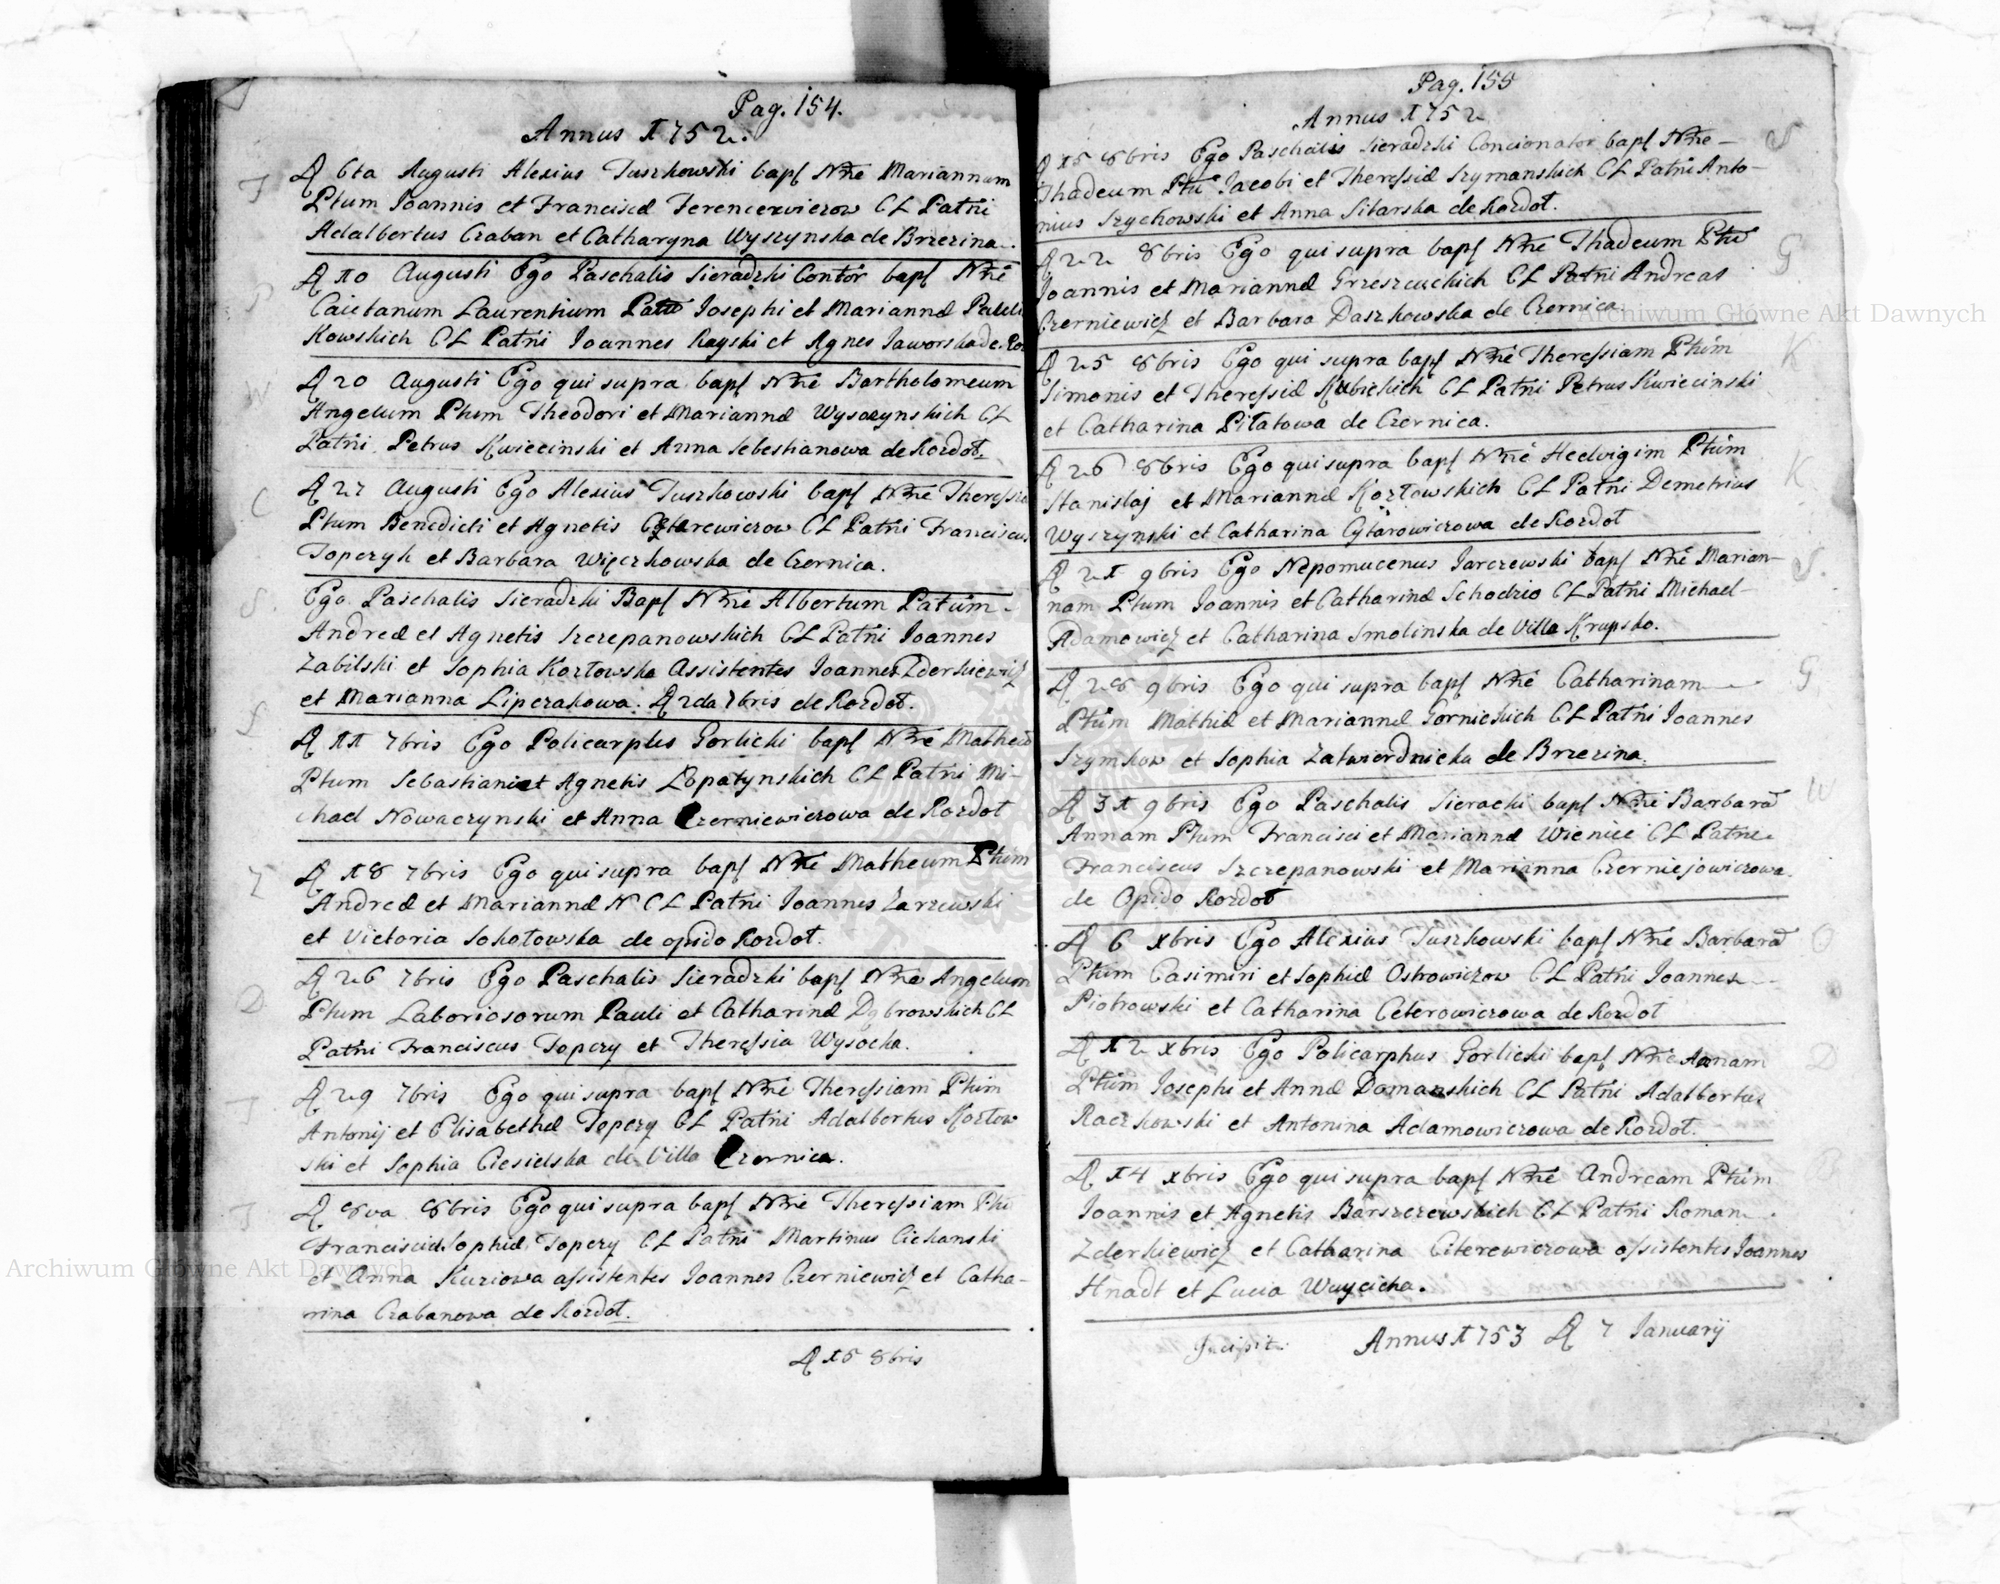 Pag. 154.
Annus 1752.
D 6ta Augusti Alexius Tuszkowski bapt Nne Mariannam
Ptum Joannis et Franciscæ Ferencewiczow CL Patni
Adalbertus Czaban et Catharyna Wyszynska de Brzezina.
D 10 Augusti Ego Paschalis Sieradzki Contor bapt Nne
Caietanum Laurentium Josephi et Mariannæ
Kowskich CL Patni Joannes Rayski et Agnes Jaworska de
D 20 Augusti Ego qui supra bapt Nne Bartholomeum
Angelum Ptum Theodori et Mariannæ Wysoczynskich CL
Patni Petrus Kwiecinski et Anna Sebestianowa de Rozdoł.
D 27 Augusti Ego Alexius Tuszkowski bapt Nne
Ptum Benedicti et Agnetis CL Patni Franciscus
Toperzyk et Barbara Więczkowska de Czernica.
Ego Paschalis Sieradzki Bapt Nne Albertum Patum
Andreæ et Agnetis Szczepanowskich CL Patni Joannes
Zabilski et Sophia Kozłowska Assistentes Joannes Zderkiewicz
et Marianna Lipczakowa. D 2da 7bris de Rozdoł.
D 11 7bris Ego Policarpus Gorlicki bapt Nne
Ptum Sebastiani et Agnetis Łopatynskich CL Patni Mi-
chael Nowaczynski et Anna Czerniewiczowa de Rozdoł
D 18 7bris Ego qui supra bapt Nne Matheum Ptum
Andreæ et Mariannæ N CL Patni Joannes Zarzewski
et Victoria Sokołowska de opido Rozdoł.
D 26 7bris Ego Paschalis Sieradzki bapt Nne Angelum
Ptum Laboriosorum Pauli et Catharinæ Dąbrowskich CL
Patni Franciscus Topczy et Theressia Wysocka.
D 29 7bris Ego qui supra bapt Nne Theressiam Ptum
Antonij et Elisabethæ Topczy CL Patni Adalbertus Kozłow
ski et Sophia Ciesielska de Villa Czernica.
D 8va 8bris Ego qui supra bapt Nne Theressiam
Francisci et Sophiæ Topczy CL Patni Martinus Cichanski
et Anna Kuziowa assistentes Joannes Czerniewicz et Catha-
rina Czabanowa de Rozdoł.
D 15 8bris
Pag. 155
Annus 1752
D 15 8bris Ego Paschalis Sieradzki Concionator bapt Nne
Thadeum Ptu Jacobi et Theressiæ Szymanskich CL Patni Anto-
nius Szychowski et Anna Sitarska de Rozdoł.
D 22 8bris Ego qui supra bapt Nne Thadeum Ptu
Joannis et Mariannæ CL Patni Andreas
Czerniewicz et Barbara Daszkowska de Czernica
D 25 8bris Ego qui supra bapt Nne Theressiam Ptum
Simonis et Theressiæ Kubickich CL Patni Petrus Kwiecinski
et Catharina Piłatowa de Czernica.
D 26 8bris Ego qui supra bapt Nne Hedvigim Ptum
Stanislaj et Mariannæ Kozłowskich CL Patni Demetrius
Wyszynski et Catharina Cytarowiczowa de Rozdoł
D 21 9bris Ego Nepomucenus Jarczewski bapt Nne Marian-
nam Ptum Joannis et Catharinæ Schodzio CL Patni Michael
Adamowicz et Catharina Smolinska de Villa Krupsko.
D 28 9bris Ego qui supra bapt Nne Catharinam
Ptum Mathiæ et Mariannæ Gornickich CL Patni Joannes
Szymkow et Sophia Zatwierdnicka de Brzezina
D 31 9bris Ego Paschalis Sieracki bapt Nne Barbaram
Annam Ptum Francisci et Mariannæ Wienice CL Patni
Franciscus Szczepanowski et Marianna Czerniejowiczowa
de Opido Rozdoł
D 6 xbris Ego Alexius Tuszkowski bapt Nne Barbaram
Ptum Casimiri et Sophiæ Ostrowiczow CL Patni Joannes
Piotrowski et Catharina Ceterowiczowa de Rozdoł
D 12 xbris Ego Policarphus Gorlicki bapt Nne Annam
Ptum Josephi et Annæ Domanskich CL Patni Adalbertus
Raczkowski et Antonina Adamowiczowa de Rozdoł.
D 14 xbris Ego qui supra bapt Nne Andream Ptum
Joannis et Agnetis Barszczewskich CL Patni Roman
Zderkiewicz et Catharina Citerewiczowa assistentes Joannes
Hnadt et Lucia Wuycicka.
Incipit Annus 1753 D 7 Januarij
Archiwum Główne Akt Dawnych
Archiwum Główne Akt Dawnych